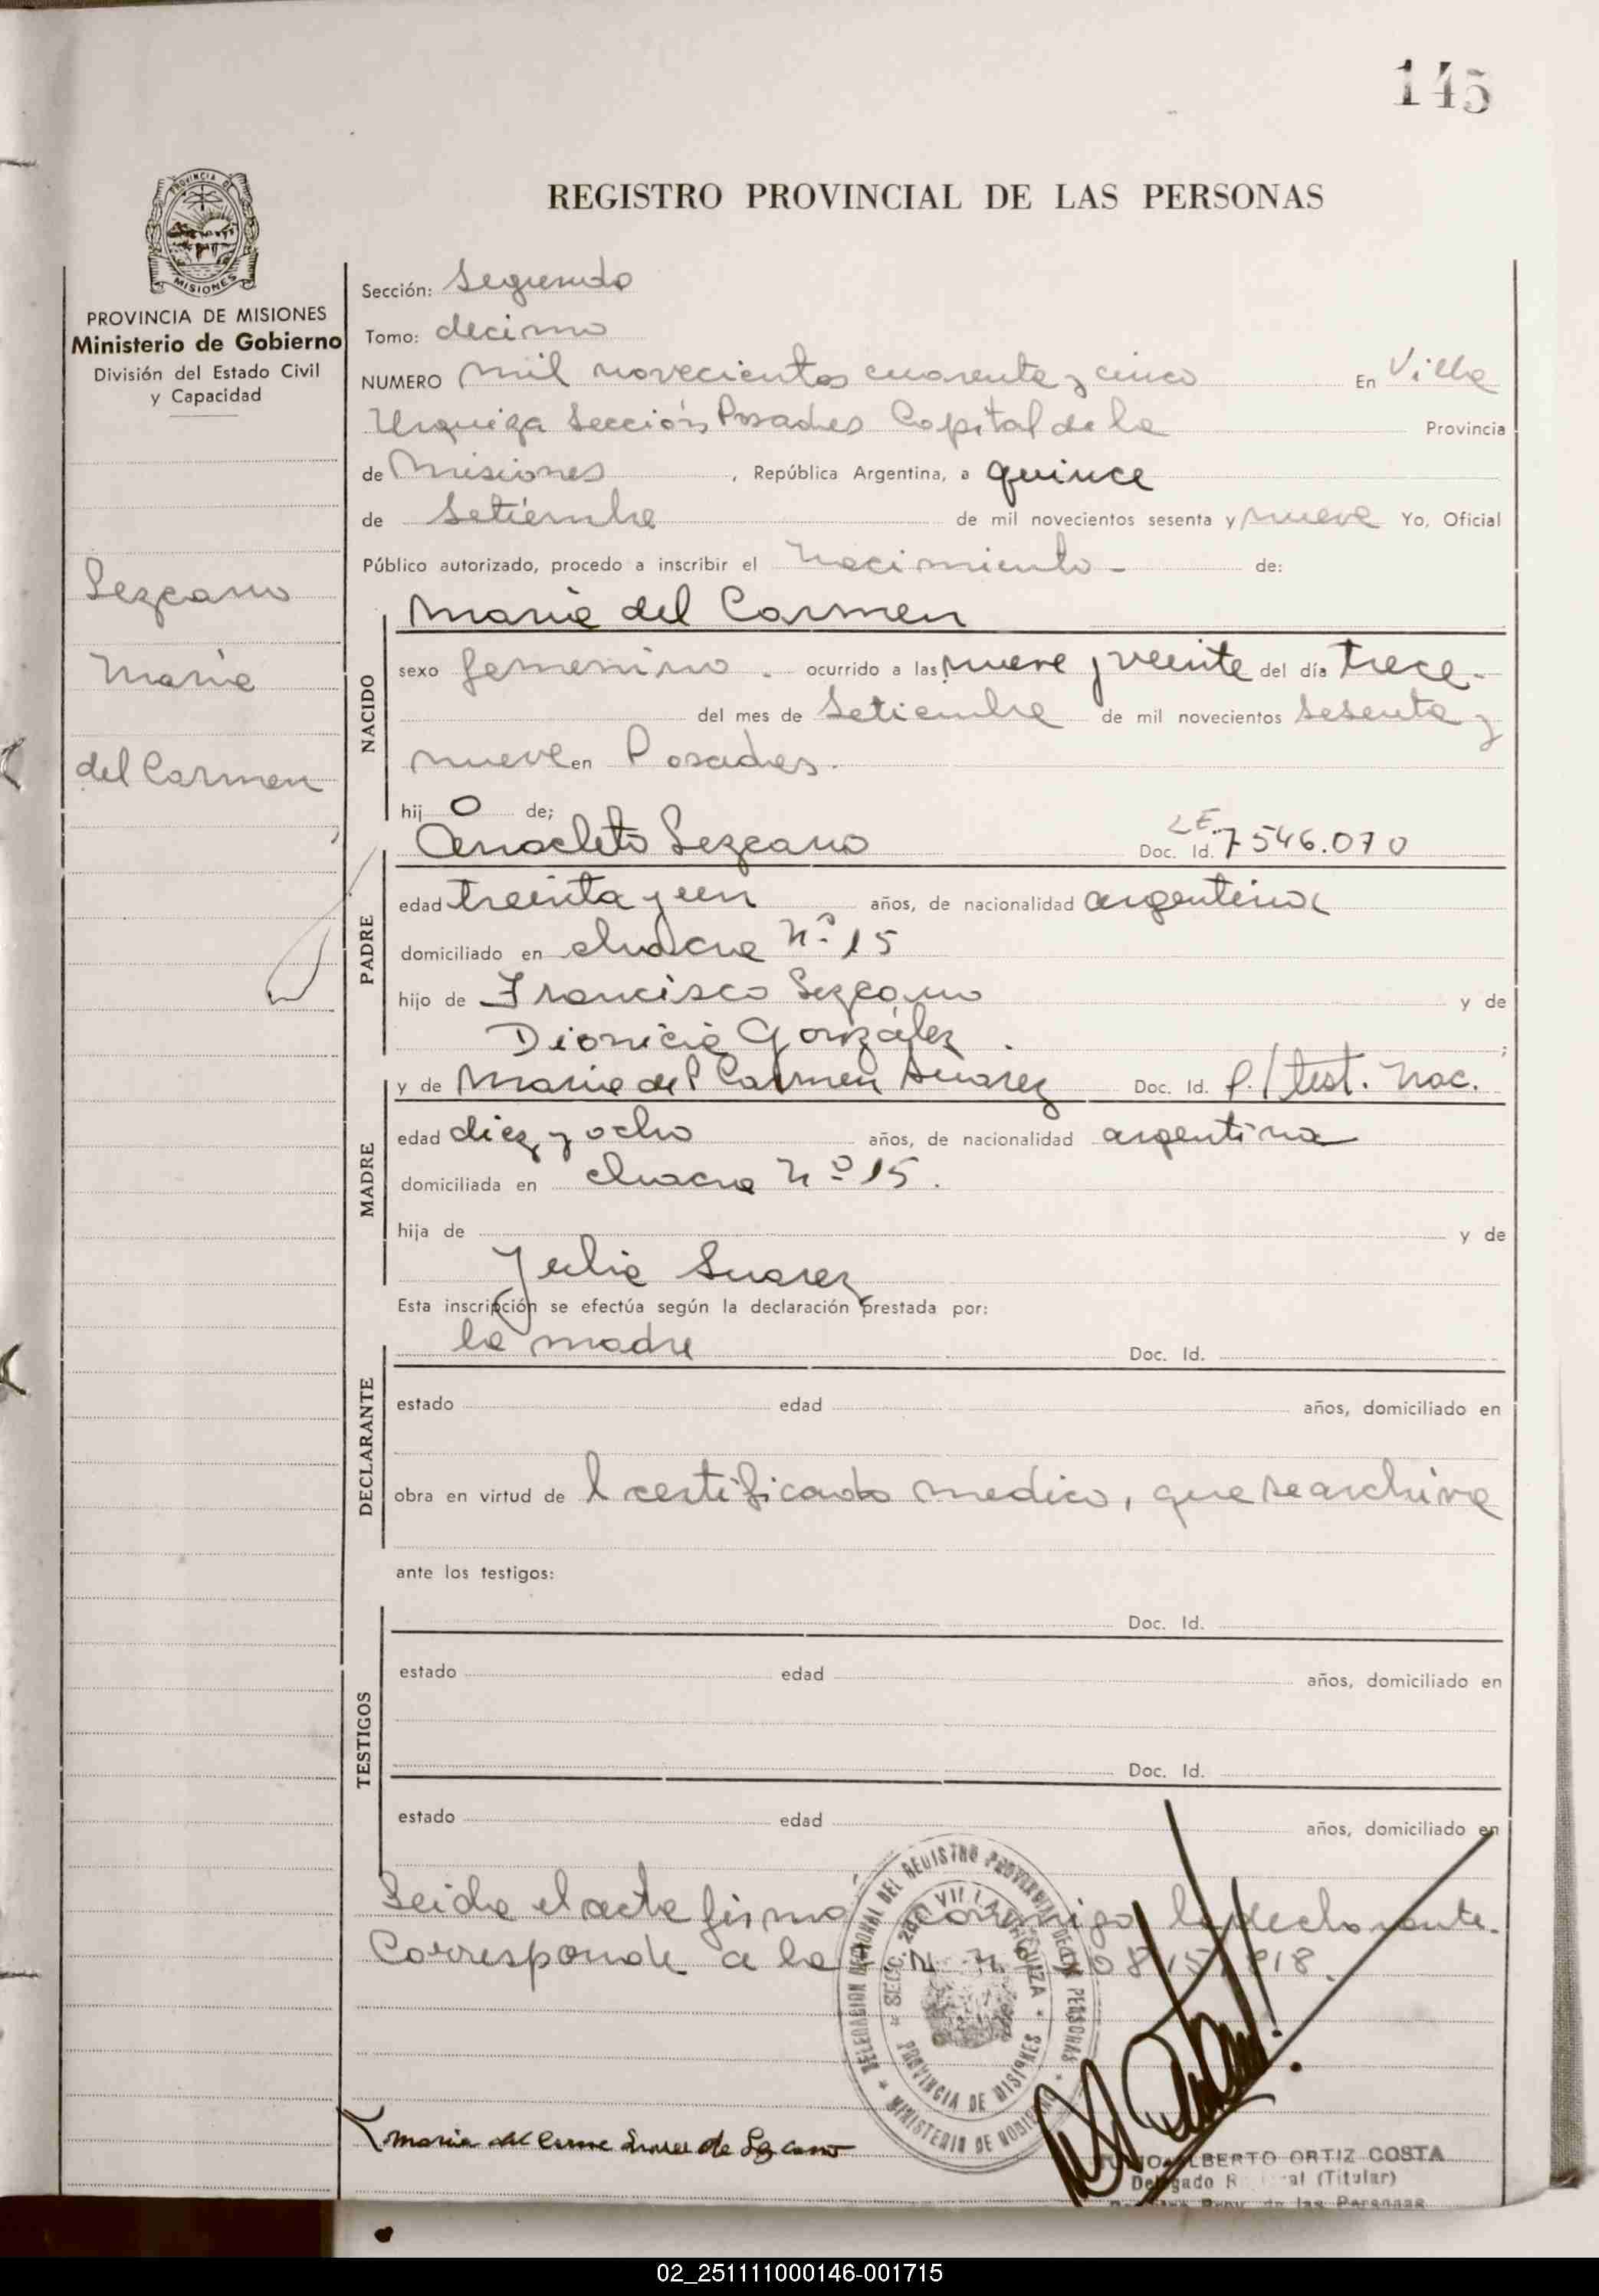 145
REGISTRO PROVINCIAL DE LAS PERSONAS
PROVINCIA DE
MISIONES
PROVINCIA DE MISIONES
Ministerio de Gobierno
División del Estado Civil
y Capacidad
Lezcano
Maria
del Carmen
Sección: Segunda
Tomo: decimo
NUMERO mil novecientos cuarenta y cinco En Villa
Urquiza Sección Posadas Capital de la Provincia
de Misiones, República Argentina, a quince
de Setiembre de mil novecientos sesenta y nueve Yo, Oficial
Público autorizado, procedo a inscribir el Nacimiento - de:
NACIDO
Maria del Carmen
sexo femenino. ocurrido a las nueve y veinte del día trece.-
del mes de Setiembre de mil novecientos sesenta y
nueve en Posadas.
hij o de;
PADRE
Anacleto Lezcano L E. Doc. Id. 7546.070
edad treinta y un años, de nacionalidad argentina
domiciliado en chacra Nº 15
hijo de Francisco Lezcano y de
Dionicia González.;
MADRE
y de Maria del Carmen Suarez Doc. Id. p./ test. Nac.
edad diez y ocho años, de nacionalidad argentina
domiciliada en chacra Nº 15.
hija de y de
Julia Suarez
Esta inscripción se efectúa según la declaración prestada por:
DECLARANTE
la madre Doc. Id.
estado edad años, domiciliado en
obra en virtud de l certificado medico, que se archiva
ante los testigos:
TESTIGOS
Doc. Id.
estado edad años, domiciliado en
Doc. Id.
estado edad años, domiciliado en
Leida el acta firma conmigo la declarante.
Corresponde a la
DELEGACION SECCIONAL DEL REGISTRO PROVINCIAL DE LAS PERSONAS
MINISTERIO DE GOBIERNO
SECC. 2da. VILLA URQUIZA
PROVINCIA DE MISIONES
Maria del Suarez de Lezcano
ALBERTO ORTIZ COSTA
Delegado (Titular)
Prov. de las Personas
02_251111000146-001715